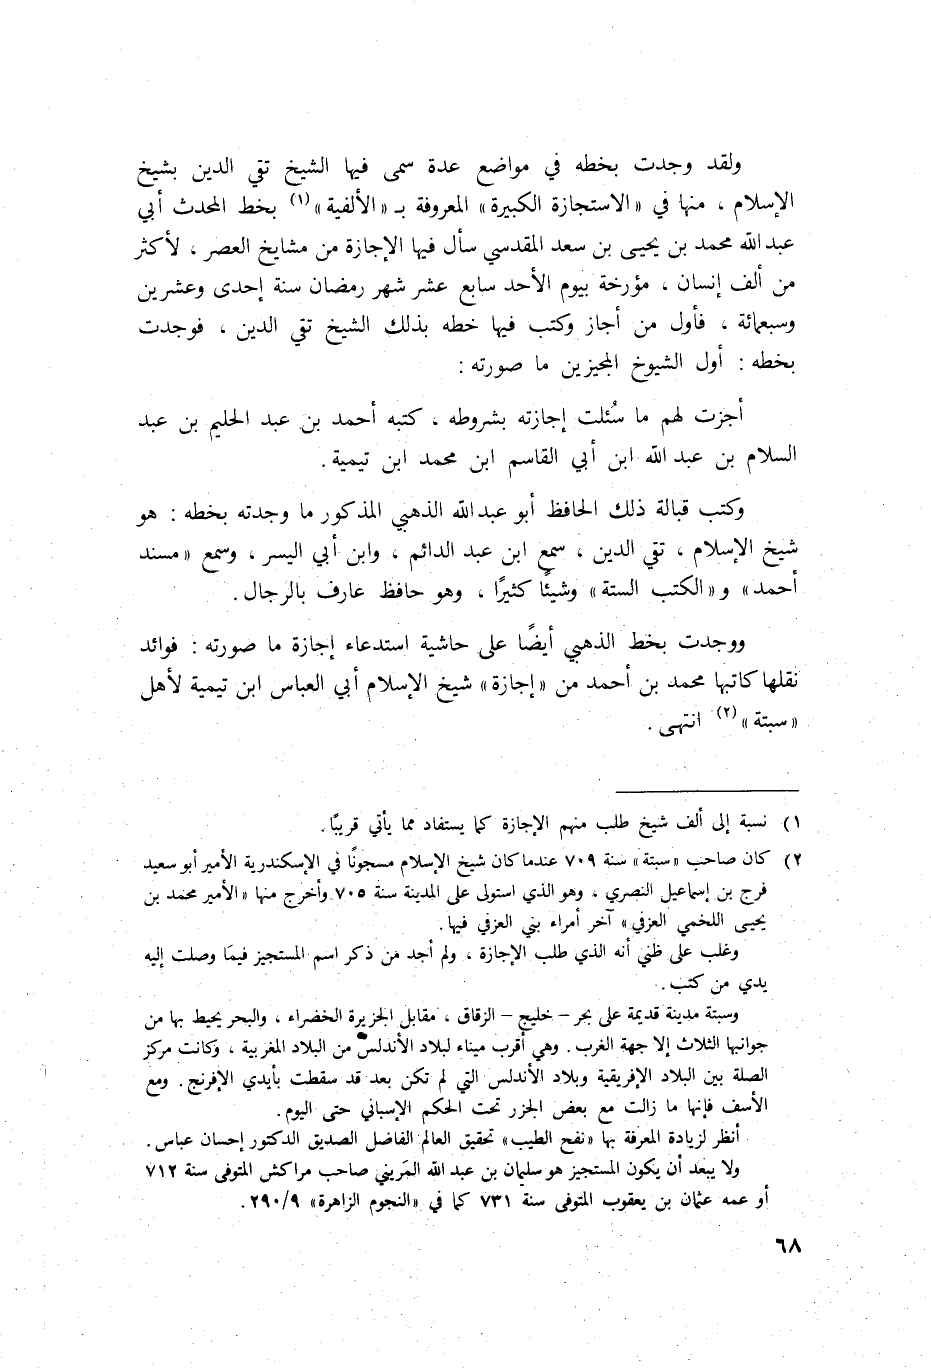 ولقد وجدت بخطه في مواضع عدة سمى فيها الشيخ تقي الدين بشيخ
الإسلام ، منها في «الاستجازة الكبيرة» المعروفة بـ «الألفية»(١) بخط المحدث أبي
عبد الله محمد بن يحيى بن سعد المقدسي سأل فيها الإجازة من مشايخ العصر ، لأكثر
من ألف إنسان ، مؤرخة بيوم الأحد سابع عشر شهر رمضان سنة إحدى وعشرين
وسبعمائة ، فأول من أجاز وكتب فيها خطه بذلك الشيخ تقي الدين ، فوجدت
بخطه : أول الشيوخ المجيزين ما صورته :
أجزت لهم ما سُئلت إجازته بشروطه ، كتبه أحمد بن عبد الحليم بن عبد
السلام بن عبد الله ابن أبي القاسم ابن محمد ابن تيمية .
وكتب قبالة ذلك الحافظ أبو عبد الله الذهبي المذكور ما وجدته بخطه : هو
شيخ الإسلام ، تقي الدين ، سمع ابن عبد الدائم ، وابن أبي اليسر ، وسمع «مسند
أحمد» و «الكتب الستة» وشيئًا كثيرًا ، وهو حافظ عارف بالرجال .
ووجدت بخط الذهبي أيضًا على حاشية استدعاء إجازة ما صورته : فوائد
نقلها كاتبها محمد بن أحمد من «إجازة» شيخ الإسلام أبي العباس ابن تيمية لأهل
«سبتة»(٢) انتهى .
١) نسبة إلى ألف شيخ طلب منهم الإجازة كما يستفاد مما يأتي قريبًا .
٢) كان صاحب «سبتة» سنة ٧٠٩ عندما كان شيخ الإسلام مسجونًا في الإسكندرية الأمير أبو سعيد
فرج بن إسماعيل النصري ، وهو الذي استولى على المدينة سنة ٧٠٥ وأخرج منها «الأمير محمد بن
يحيى اللخمي العزفي» آخر أمراء بني العزفي فيها .
وغلب على ظني أنه الذي طلب الإجازة ، ولم أجد من ذكر اسم المستجيز فيما وصلت إليه
يدي من كتب .
وسبتة مدينة قديمة على بحر - خليج - الزقاق ، مقابل الجزيرة الخضراء ، والبحر يحيط بها من
جوانبها الثلاث إلا جهة الغرب . وهي أقرب ميناء لبلاد الأندلس من البلاد المغربية ، وكانت مركز
الصلة بين البلاد الإفريقية وبلاد الأندلس التي لم تكن بعد قد سقطت بأيدي الإفرنج . ومع
الأسف فإنها ما زالت مع بعض الجزر تحت الحكم الإسباني حتى اليوم .
أنظر لزيادة المعرفة بها «نفح الطيب» تحقيق العالم الفاضل الصديق الدكتور إحسان عباس .
ولا يبعد أن يكون المستجيز هو سليمان بن عبد الله المَريني صاحب مراكش المتوفى سنة ٧١٢
أو عمه عثمان بن يعقوب المتوفى سنة ٧٣١ كما في «النجوم الزاهرة» ٢٩٠/٩ .
٦٨